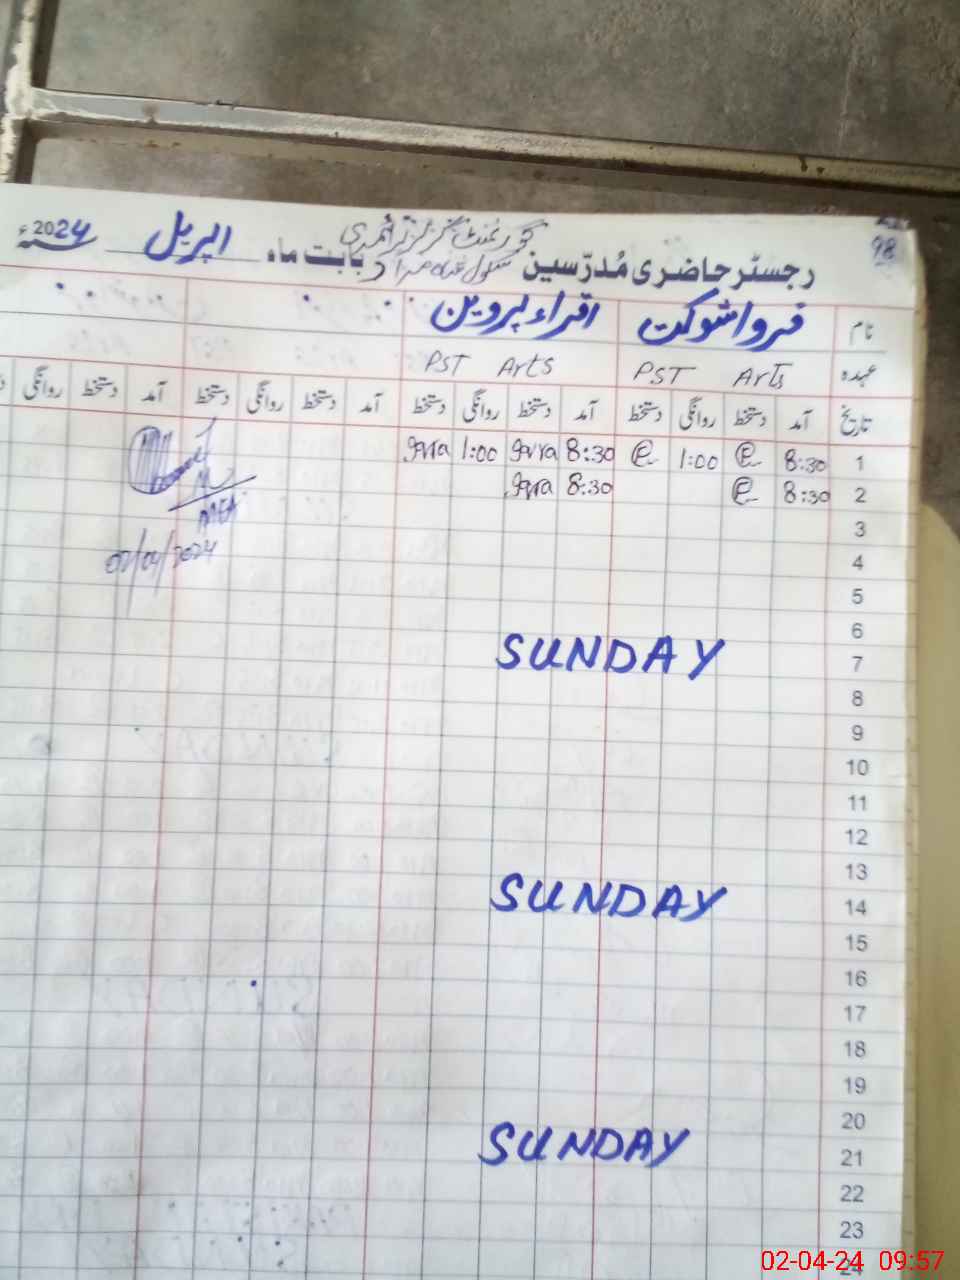 98
گورنمنٹ گرلز پرائمری
رجسٹر حاضری مُدرّسین سکول بابت ماہ اپریل 2024ء
نام فروا شوکت اقراء پروین
عہدہ PST Arts PST Arts
تاریخ آمد دستخط روانگی دستخط آمد دستخط روانگی دستخط آمد دستخط روانگی دستخط آمد دستخط روانگی
1 8:30 1:00 8:30 Iqra 1:00 Iqra
2 8:30 8:30 Iqra
MEA
02/04/2024
3
4
5
6
7 SUNDAY
8
9
10
11
12
13
14 SUNDAY
15
16
17
18
19
20
21 SUNDAY
22
23
24
02-04-24 09:57